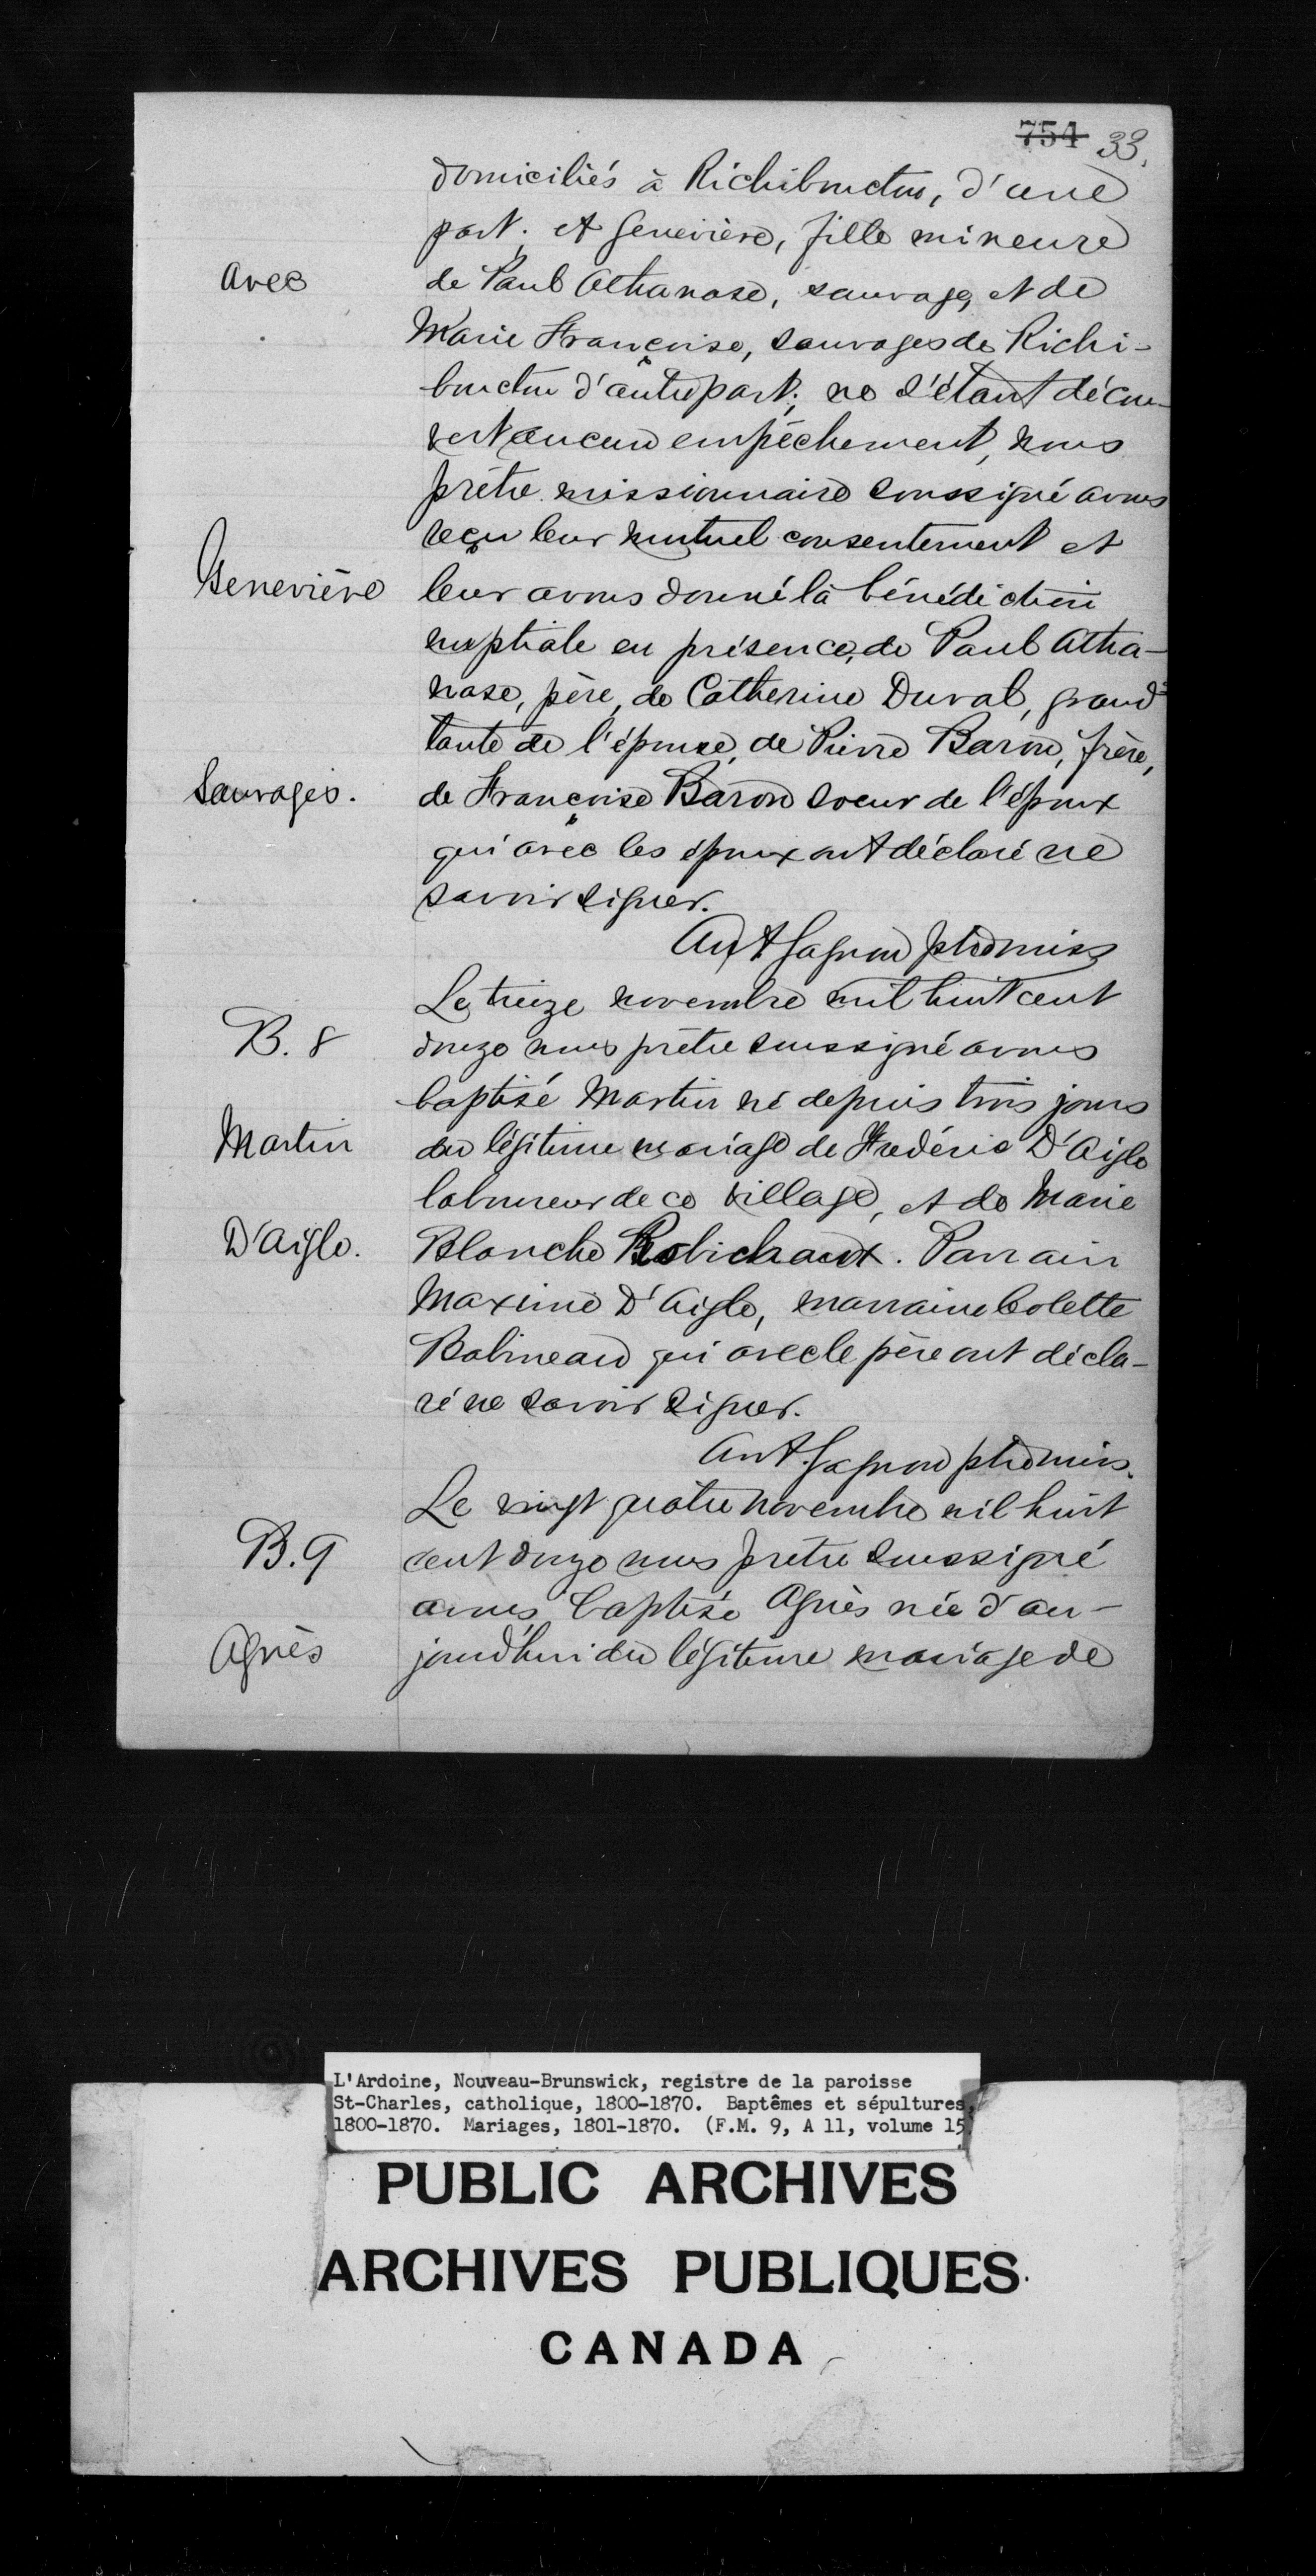 754 33.
domiciliés à Richibouctou, d'une
part; et Geneviève, fille mineure
Avec
de Paul Athanase, sauvage, et de
Marie Françoise, sauvages de Richi-
bouctou d'autre part; ne s'étant décou-
vert aucun empêchement, nous
prêtre missionnaire soussigné avons
reçu leur mutuel consentement et
Geneviève
leur avons donné la bénédiction
nuptiale en présence, de Paul Atha-
nase, père, de Catherine Duval, grand
tante de l'épouse, de Pierre Baron, frère,
Sauvages.
de Françoise Baron soeur de l'époux
qui avec les époux ont déclaré ne
savoir signer.
Ant Gagnon ptre miss
Le treize novembre mil huit cent
B. 8
douze nous prêtre soussigné avons
baptisé Martin né depuis trois jours
Martin
du légitime mariage de Frédéric D'Aigle
laboureur de ce village, et de Marie
D'Aigle.
Blanche Robichaux. Parrain
Maxime D'Aigle, marraine Colette
Babineau qui avec le père ont décla-
ré ne savoir signer.
Ant. Gagnon ptre miss.
Le vingt quatre novembre mil huit
B. 9
cent douze nous prêtre soussigné
avons baptisé Agnès née d'au-
Agnès
jourd'hui du légitime mariage de
L'Ardoine, Nouveau-Brunswick, registre de la paroisse
St-Charles, catholique, 1800-1870. Baptêmes et sépultures,
1800-1870. Mariages, 1801-1870. (F.M. 9, A 11, volume 15)
PUBLIC ARCHIVES
ARCHIVES PUBLIQUES
CANADA